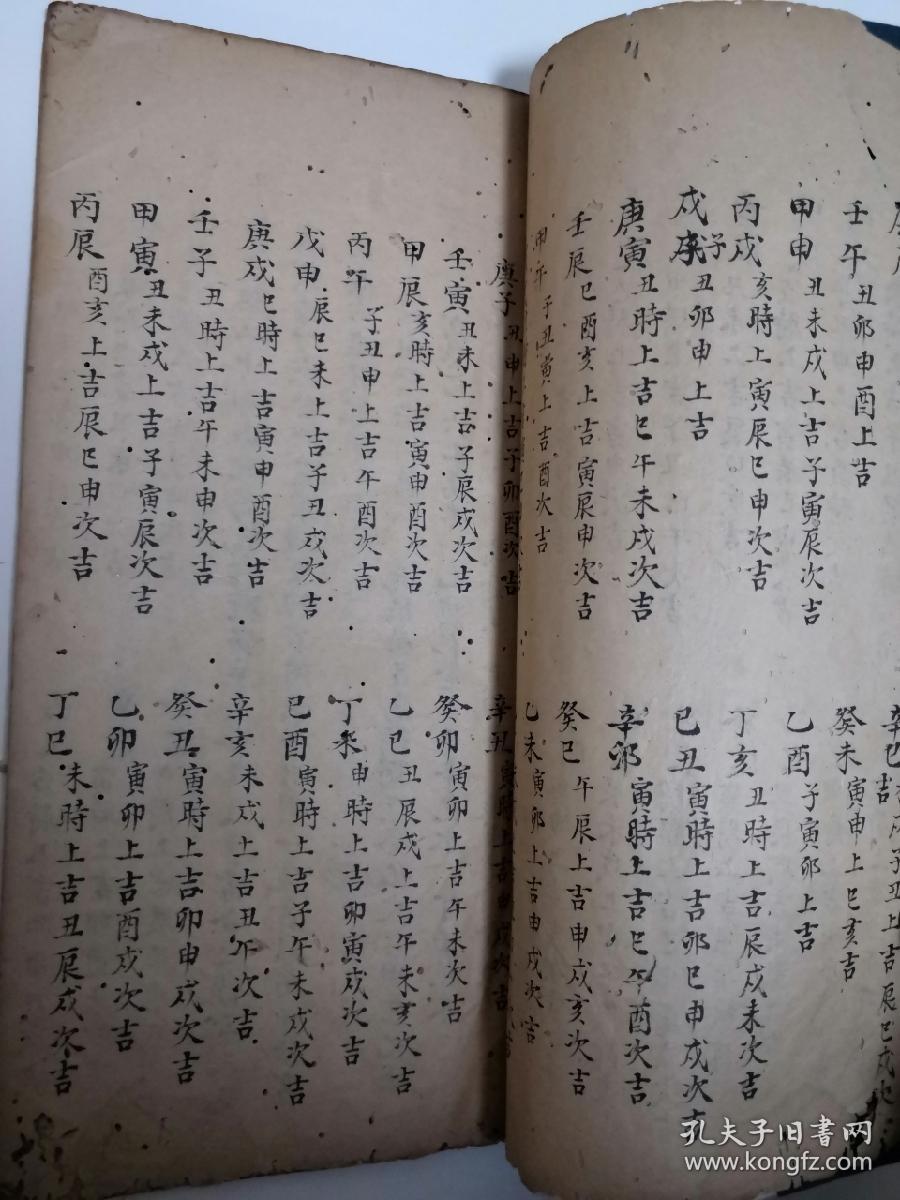 壬午丑卯申酉上吉
甲申丑未戌上吉子寅辰次吉
丙戌亥時上寅辰巳申次吉
戊子丑卯申上吉
庚寅丑時上吉巳午未戌次吉
壬辰巳酉亥上吉寅辰申次吉
甲午子丑寅上吉酉次吉
癸未寅申上巳亥吉
乙酉子寅卯上吉
丁亥丑時上吉辰戌未次吉
己丑寅時上吉卯巳申戌次吉
辛卯寅時上吉巳午酉次吉
癸巳午辰上吉申戌亥次吉
乙未寅卯上吉申戌次吉
庚子丑申上吉子卯酉次吉
壬寅丑未上吉子辰戌次吉
甲辰亥時上吉寅申酉次吉
丙午子丑申上吉午酉次吉
戊申辰巳未上吉子丑戌次吉
庚戌巳時上吉寅申酉次吉
壬子丑時上吉午未申次吉
甲寅丑未戌上吉子寅辰次吉
丙辰酉亥上吉辰巳申次吉
辛丑寅時上吉
癸卯寅卯上吉午未次吉
乙巳丑辰戌上吉午未亥次吉
丁未申時上吉卯寅戌次吉
己酉寅時上吉子午未戌次吉
辛亥未戌上吉丑午次吉
癸丑寅時上吉卯申戌次吉
乙卯寅卯上吉酉戌次吉
丁巳未時上吉丑辰戌次吉
孔夫子旧书网
www.kongfz.com